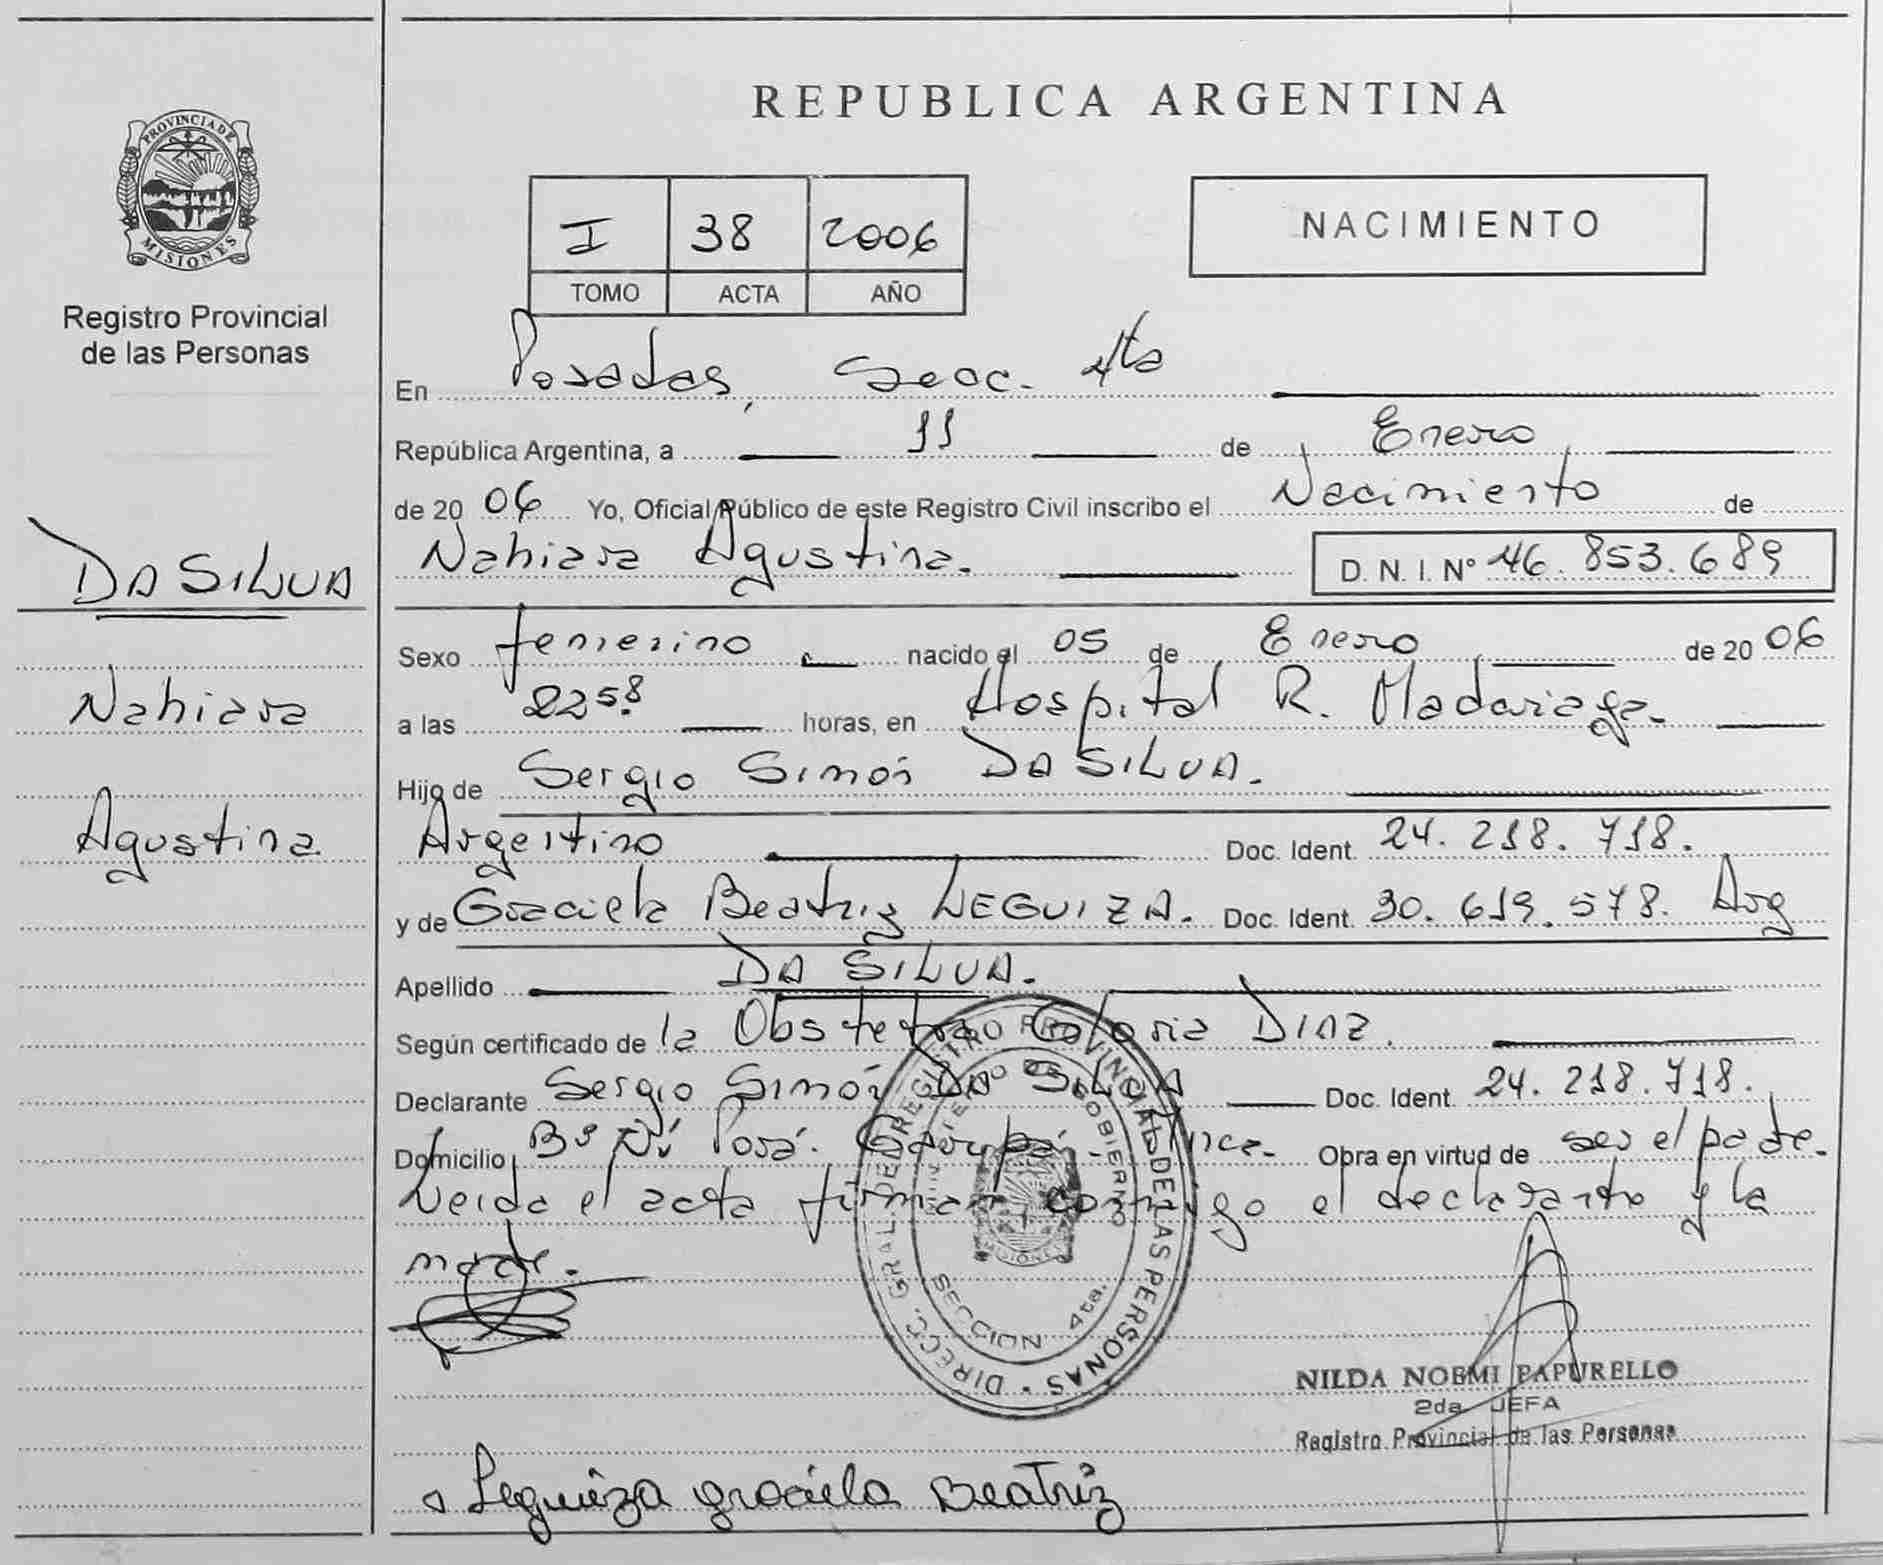 PROVINCIA DE
MISIONES
Registro Provincial
de las Personas
DA SILVA
Nahiara
Agustina
REPUBLICA ARGENTINA
I 38 2006
TOMO ACTA AÑO
NACIMIENTO
En Posadas, Secc. 4ta
República Argentina, a 11 de Enero
de 20 06 Yo, Oficial Público de este Registro Civil inscribo el Nacimiento de
Nahiara Agustina. D. N. I. Nº 46.853.689
Sexo femenino nacido el 05 de Enero de 20 06
a las 2258 horas, en Hospital R. Madariaga.
Hijo de Sergio Simón DA SILVA.
Argentino Doc. Ident. 24.218.718.
y de Graciela Beatriz LEGUIZA. Doc. Ident. 30.619.578. Arg
Apellido DA SILVA.
Según certificado de la Obstetra Gloria DIAZ.
Declarante Sergio Simón DA SILVA Doc. Ident. 24.218.718.
Domicilio Bº Ñú Porá. Garupá. Obra en virtud de ser el padre.
Leida el acta firman conmigo el declarante y la
madre.
DIRECC. GRAL. DEL REGISTRO PROVINCIAL DE LAS PERSONAS
MINISTERIO DE GOBIERNO
MISIONES
SECCION 4ta.
NILDA NOEMI PAPURELLO
2da JEFA
Registro Provincial de las Personas
Leguiza graciela Beatriz